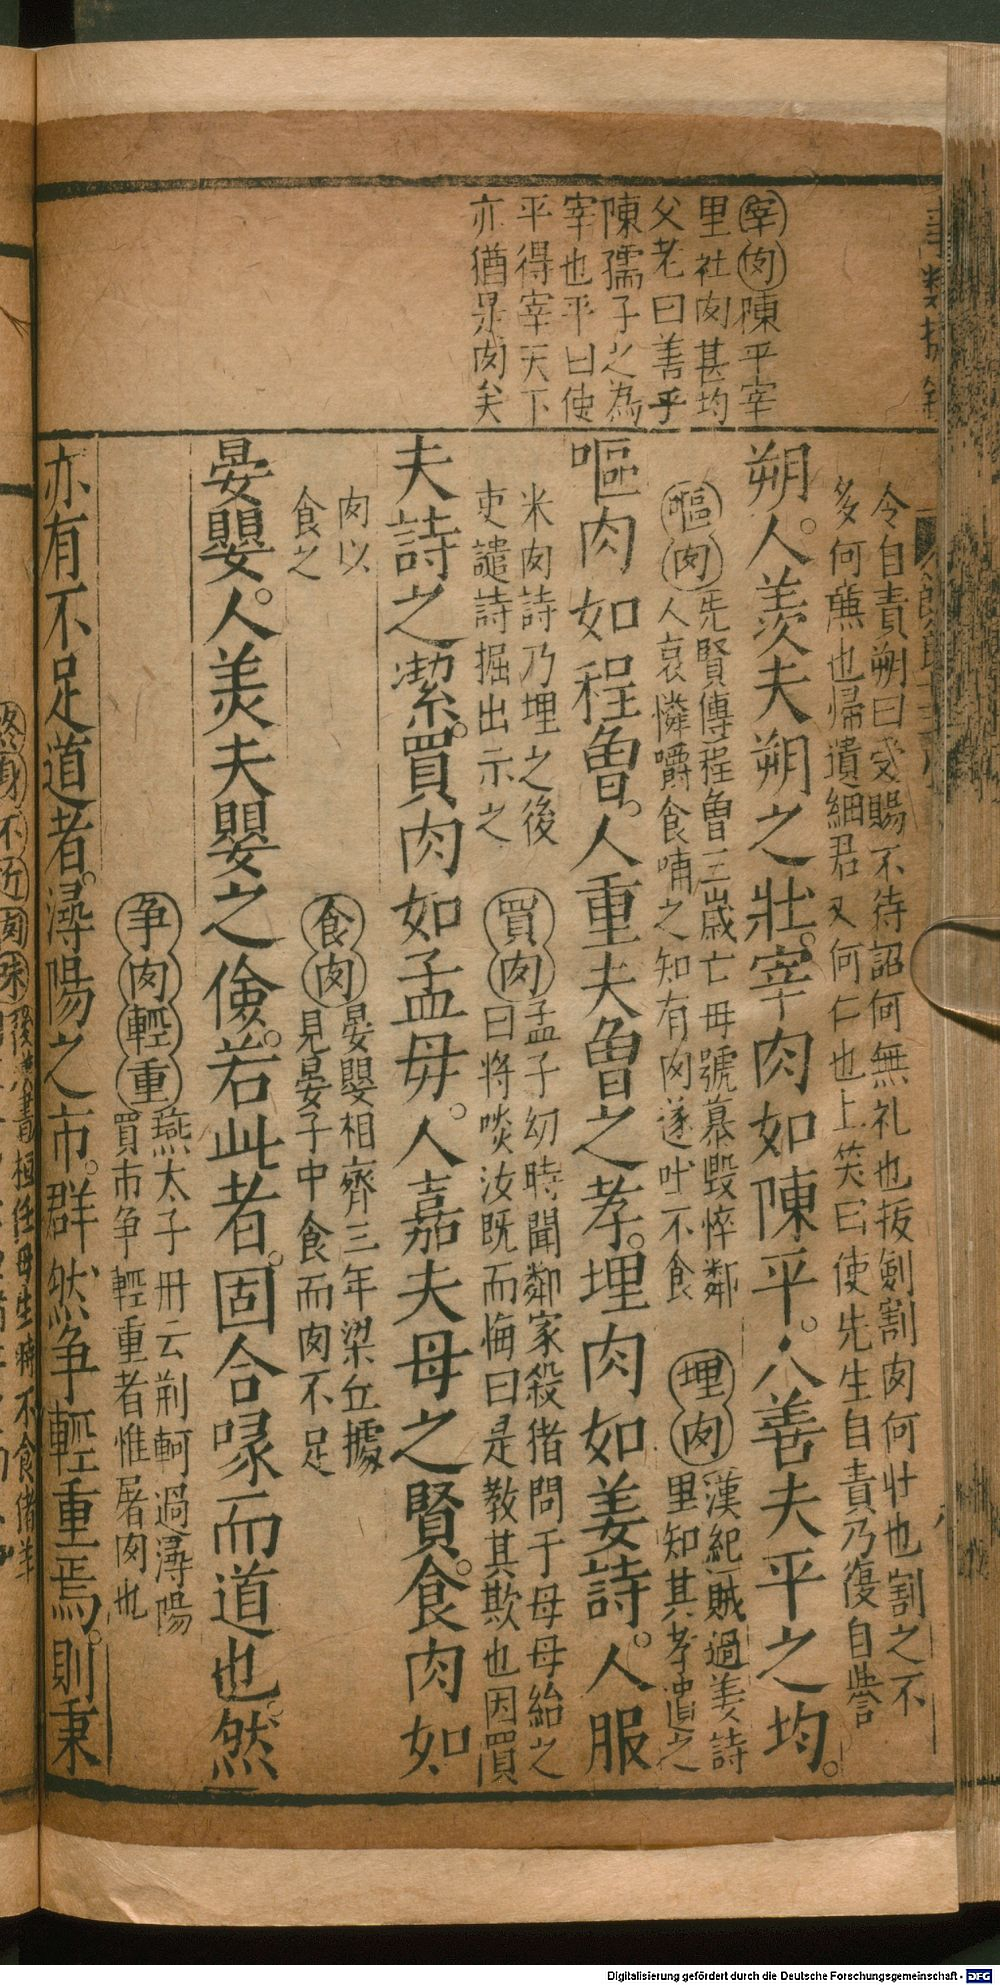 宰肉陳平宰
里社肉甚均
父老曰善乎
陳孺子之為
宰也平曰使
平得宰天下
亦猶是肉矣
令自責朔曰受賜不待詔何無礼也抜劍割肉何壮也割之不
多何㢘也帰遺細君又何仁也上笑曰使先生自責乃復自譽
朔。人羨夫朔之壯。宰肉如陳平。人善夫平之均。
嘔肉先賢傳程曾三歲亡母號慕毀悴鄰
人哀憐嚼食哺之知有肉遂吐不食
埋肉漢紀賊過姜詩
里知其孝遺之
嘔肉如程曾。人重夫曾之孝。埋肉如姜詩。人服
米肉詩乃埋之後
吏譴詩掘出示之
買肉孟子幼時聞鄰家殺猪問于母母紿之
曰將啖汝既而悔曰是教其欺也因買
夫詩之潔。買肉如孟母。人嘉夫母之賢。食肉如
肉以
食之
食肉晏嬰相齊三年梁丘據
見晏子中食而肉不足
晏嬰。人美夫嬰之儉。若此者。固合喙而道也。然
爭肉輕重燕太子丹云荊軻過潯陽
買市爭輕重者惟屠肉也
亦有不足道者。潯陽之市。群然爭輕重焉。則秉
Digitalisierung gefördert durch die Deutsche Forschungsgemeinschaft - DFG